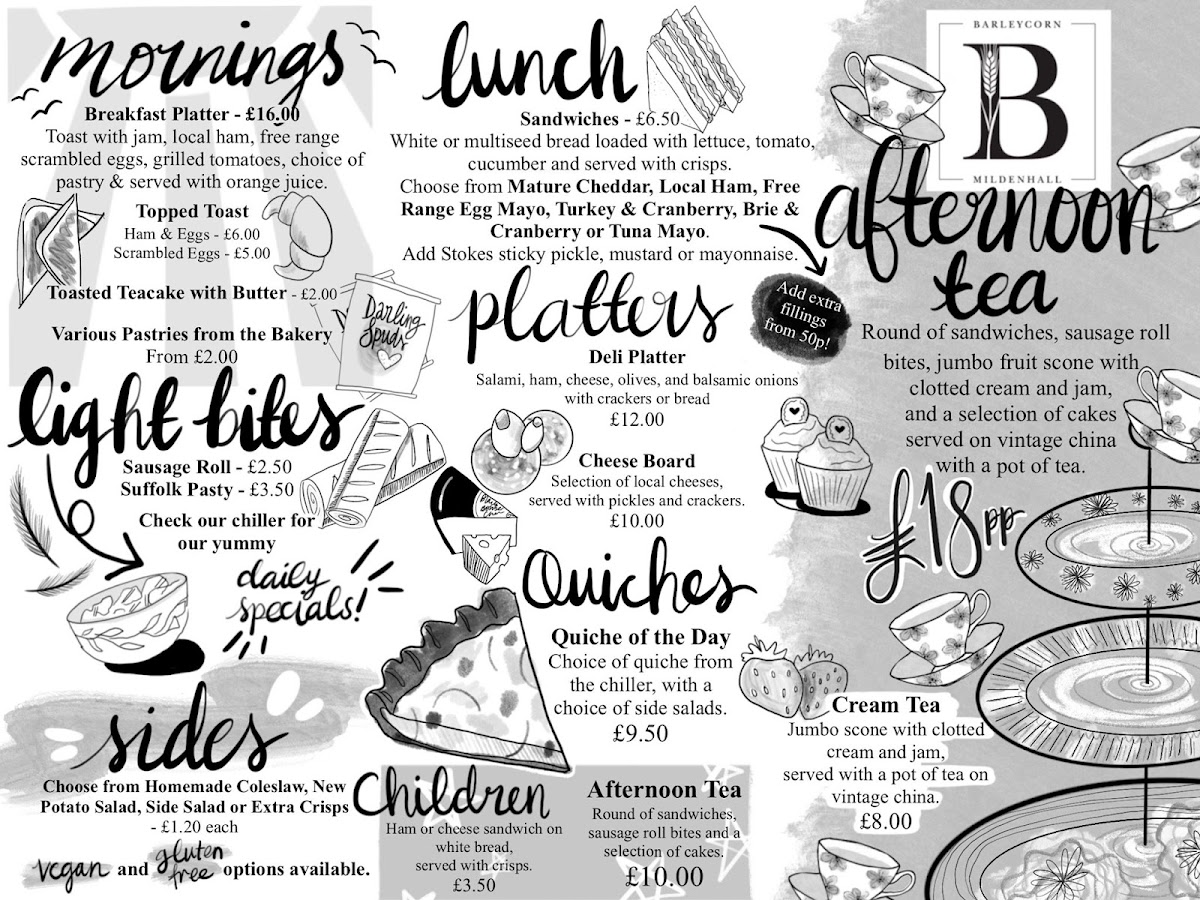 mornings
Breakfast Platter - £16.00
Toast with jam, local ham, free range
scrambled eggs, grilled tomatoes, choice of
pastry & served with orange juice.
Topped Toast
Ham & Eggs - £6.00
Scrambled Eggs - £5.00
Toasted Teacake with Butter - £2.00
Various Pastries from the Bakery
From £2.00
Darling
Spuds
light bites
Sausage Roll - £2.50
Suffolk Pasty - £3.50
Check our chiller for
our yummy
daily
specials!
sides
Choose from Homemade Coleslaw, New
Potato Salad, Side Salad or Extra Crisps
- £1.20 each
vegan and gluten
free options available.
lunch
Sandwiches - £6.50
White or multiseed bread loaded with lettuce, tomato,
cucumber and served with crisps.
Choose from Mature Cheddar, Local Ham, Free
Range Egg Mayo, Turkey & Cranberry, Brie &
Cranberry or Tuna Mayo.
Add Stokes sticky pickle, mustard or mayonnaise.
Add extra
fillings
from 50p!
platters
Deli Platter
Salami, ham, cheese, olives, and balsamic onions
with crackers or bread
£12.00
Cheese Board
Selection of local cheeses,
served with pickles and crackers.
£10.00
Quiches
Quiche of the Day
Choice of quiche from
the chiller, with a
choice of side salads.
£9.50
Children
Ham or cheese sandwich on
white bread,
served with crisps.
£3.50
Afternoon Tea
Round of sandwiches,
sausage roll bites and a
selection of cakes.
£10.00
BARLEYCORN
B
MILDENHALL
afternoon
tea
Round of sandwiches, sausage roll
bites, jumbo fruit scone with
clotted cream and jam,
and a selection of cakes
served on vintage china
with a pot of tea.
£18pp
Cream Tea
Jumbo scone with clotted
cream and jam,
served with a pot of tea on
vintage china.
£8.00